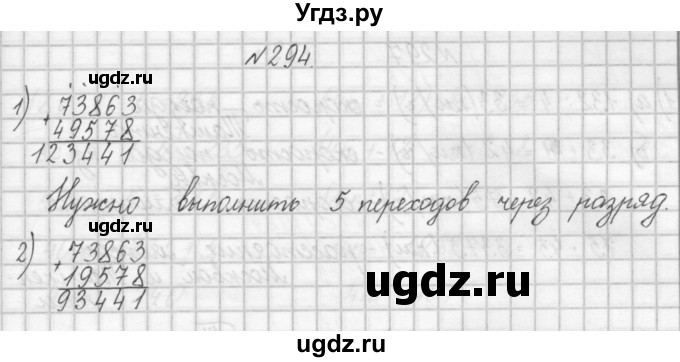 Угдз.ру
№294.
ugdz.ru
1) 73863
+ 49578
123441
Нужно выполнить 5 переходов через разряд.
2) 73863
+ 19578
93441
ugdz.ru
ugdz.ru
ugdz.ru